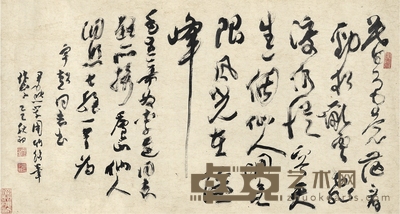 暮色苍茫看
劲松乱云飞
渡仍从容天
生一个仙人洞无
限风光在险
峰
毛主席为李进同志
题所摄庐山仙人
洞照七绝一首为
同志书
艺术网